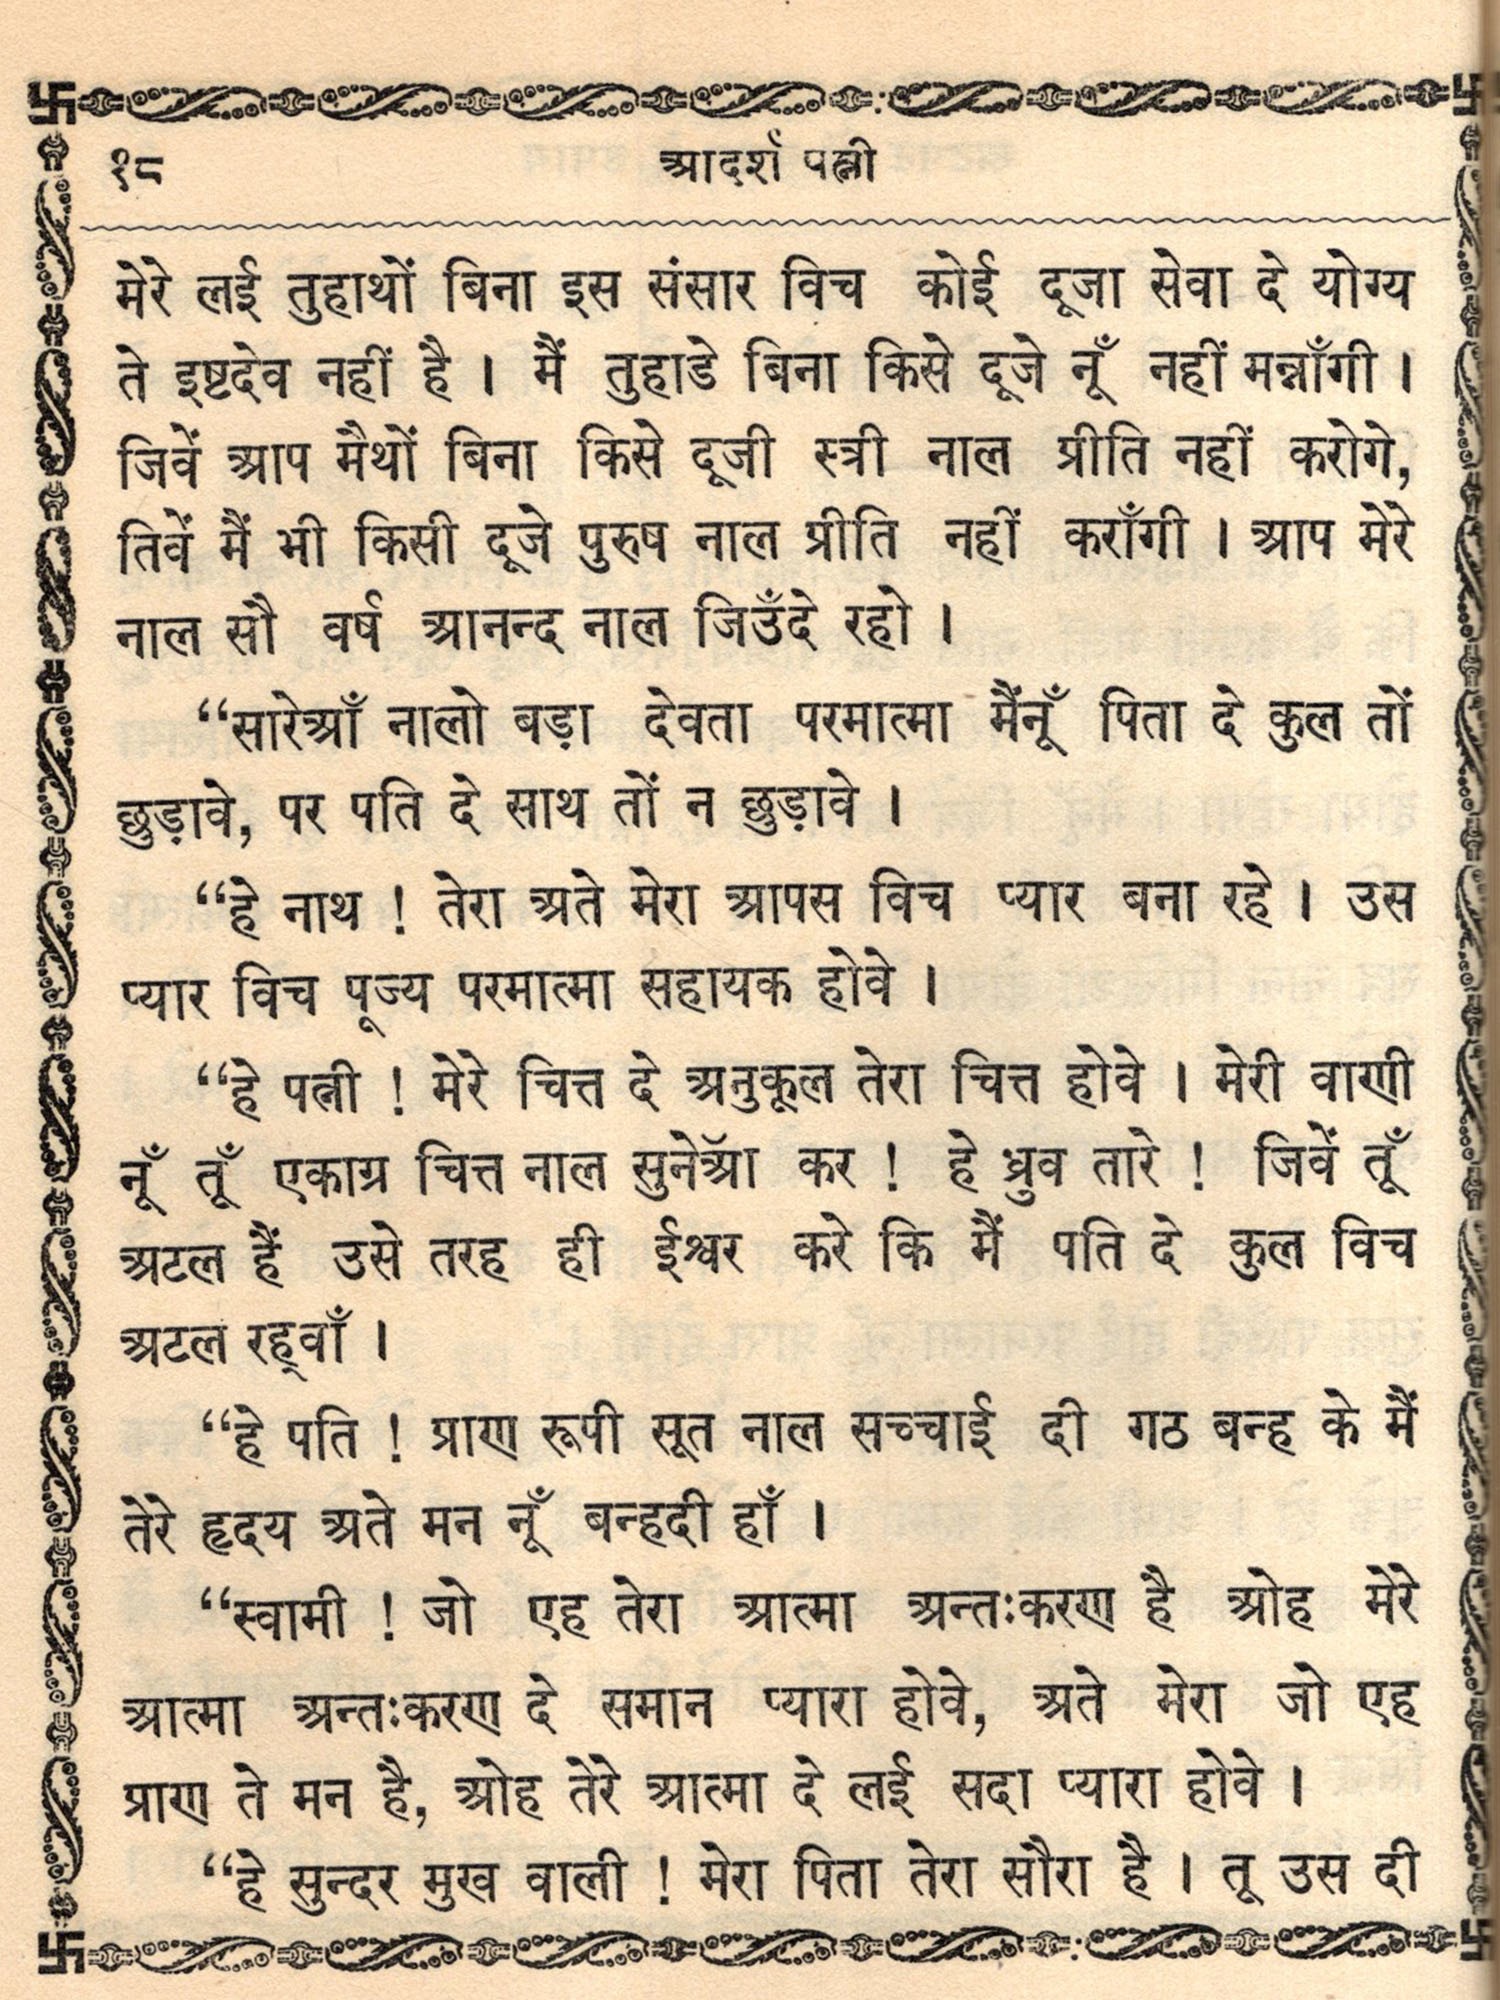 १८
आदर्श पत्नी
मेरे लई तुहाथों बिना इस संसार विच कोई दूजा सेवा दे योग्य
ते इष्टदेव नहीं है । मैं तुहाडे बिना किसे दूजे नूँ नहीं मन्नाँगी ।
जिवें आप मैथों बिना किसे दूजी स्त्री नाल प्रीति नहीं करोगे,
तिवें मैं भी किसी दूजे पुरुष नाल प्रीति नहीं कराँगी । आप मेरे
नाल सौ वर्ष आनन्द नाल जिउँदे रहो ।
“सारेआँ नालो बड़ा देवता परमात्मा मैंनूँ पिता दे कुल तों
छुड़ावे, पर पति दे साथ तों न छुड़ावे ।
“हे नाथ ! तेरा अते मेरा आपस विच प्यार बना रहे । उस
प्यार विच पूज्य परमात्मा सहायक होवे ।
“हे पत्नी ! मेरे चित्त दे अनुकूल तेरा चित्त होवे । मेरी वाणी
नूँ तूँ एकाग्र चित्त नाल सुनेऑ कर ! हे ध्रुव तारे ! जिवें तूँ
अटल हैं उसे तरह ही ईश्वर करे कि मैं पति दे कुल विच
अटल रह्वाँ ।
“हे पति ! प्राण रूपी सूत नाल सच्चाई दी गठ बन्ह के मैं
तेरे हृदय अते मन नूँ बन्हदी हाँ ।
“स्वामी ! जो एह तेरा आत्मा अन्तःकरण है ओह मेरे
आत्मा अन्तःकरण दे समान प्यारा होवे, अते मेरा जो एह
प्राण ते मन है, ओह तेरे आत्मा दे लई सदा प्यारा होवे ।
“हे सुन्दर मुख वाली ! मेरा पिता तेरा सौरा है । तू उस दी